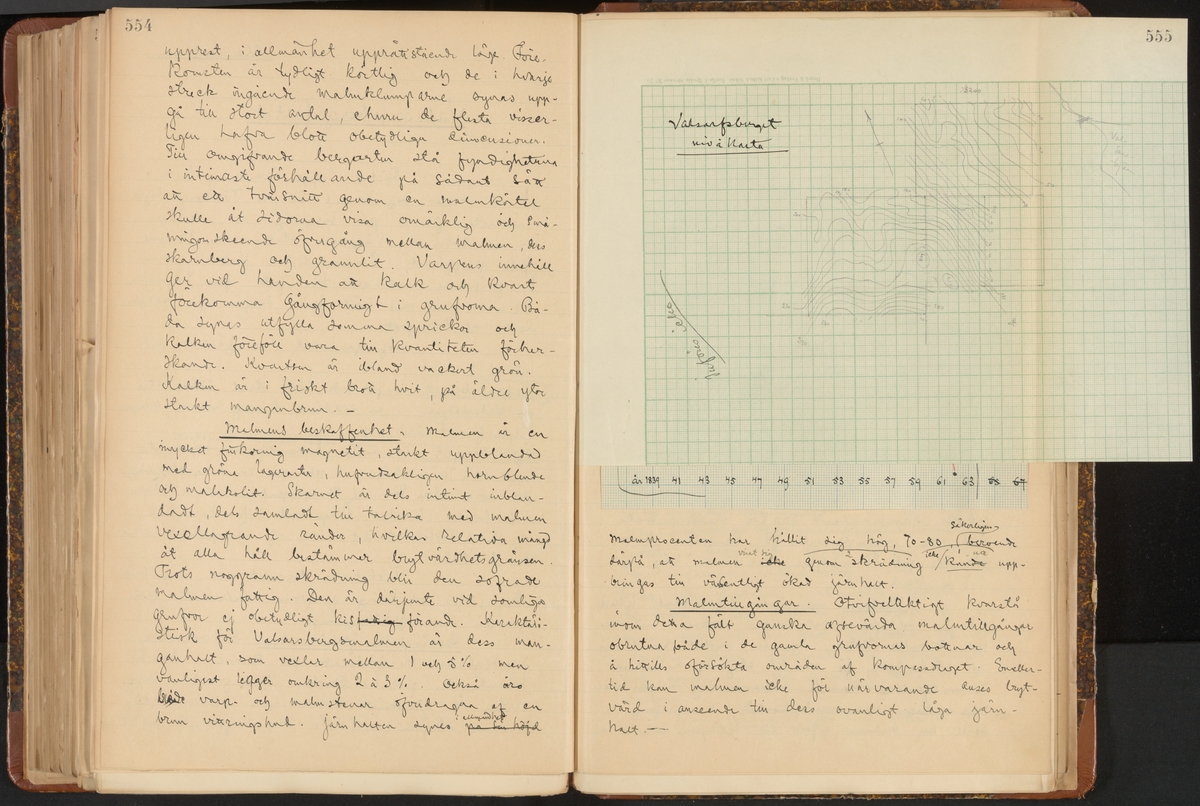 554
upprest, i allmänhet upprättstående läge. Före-
komsten är tydligt körtlig och de i hvarje
streck ingående malmklumparne synas upp-
gå till stort antal, ehuru de flesta visser-
ligen hafva blott obetydliga dimensioner.
Till omgifvande bergarter stå fyndigheterna
i intimaste förhållande på sådant sätt
att ett tvärsnitt genom en malmkörtel
skulle åt sidorna visa omärklig och små-
ningom skeende öfvergång mellan malmen, dess
skarnberg och granulit. Varpens innehåll
ger vid handen att kalk och kvarts
förekomma gångformigt i grufvorna. Bå-
da synas utfylla samma sprickor och
kalken föreföll vara till kvantiteten förher-
skande. Kvartsen är ibland vackert grön.
Kalken är i friskt brott hvit, på äldre ytor
starkt manganbrun. —
Malmens beskaffenhet. Malmen är en
mycket finkornig magnetit, starkt uppblandad
med gröna lagerarter, hufvudsakligen hornblende
och malakolit. Skarnet är dels intimt inblan-
dadt, dels samladt till talrika med malmen
vexellagrande ränder, hvilkas relativa mängd
åt alla håll bestämmer brytvärdhetsgränsen.
Trots noggrann skrädning blir den sofrade
malmen fattig. Den är därjämte vid somliga
grufvor ej obetydligt kisförande. Karakteri-
stisk för Valsarfsbergsmalmen är dess man-
ganhalt, som vexlar mellan 1 och 5% men
vanligast ligger omkring 2 à 3%. Också äro
både varp- och malmstenar öfverdragna af en
brun vittringshud. Järnhalten synes allmänhet
555
Valsarfsberget
nivåkarta
år 1839 41 43 45 47 49 51 53 55 57 59 61 63 65 67
Malmprocenten har hållit sig hög, 70-80, säkerligen beroende
därpå, att malmen visat sig icke genom skrädning icke kunde upp-
bringas till väsentligt ökad järnhalt.
Malmtillgångar. Otvifvelaktigt kvarstå
inom detta fält ganska aktevärda malmtillgångar
obrutna både i de gamla grufvornas bottnar och
å hittills oförsökta områden af kompassdraget. Emeller-
tid kan malmen icke för närvarande anses bryt-
värd i anseende till dess ovanligt låga järn-
halt. —